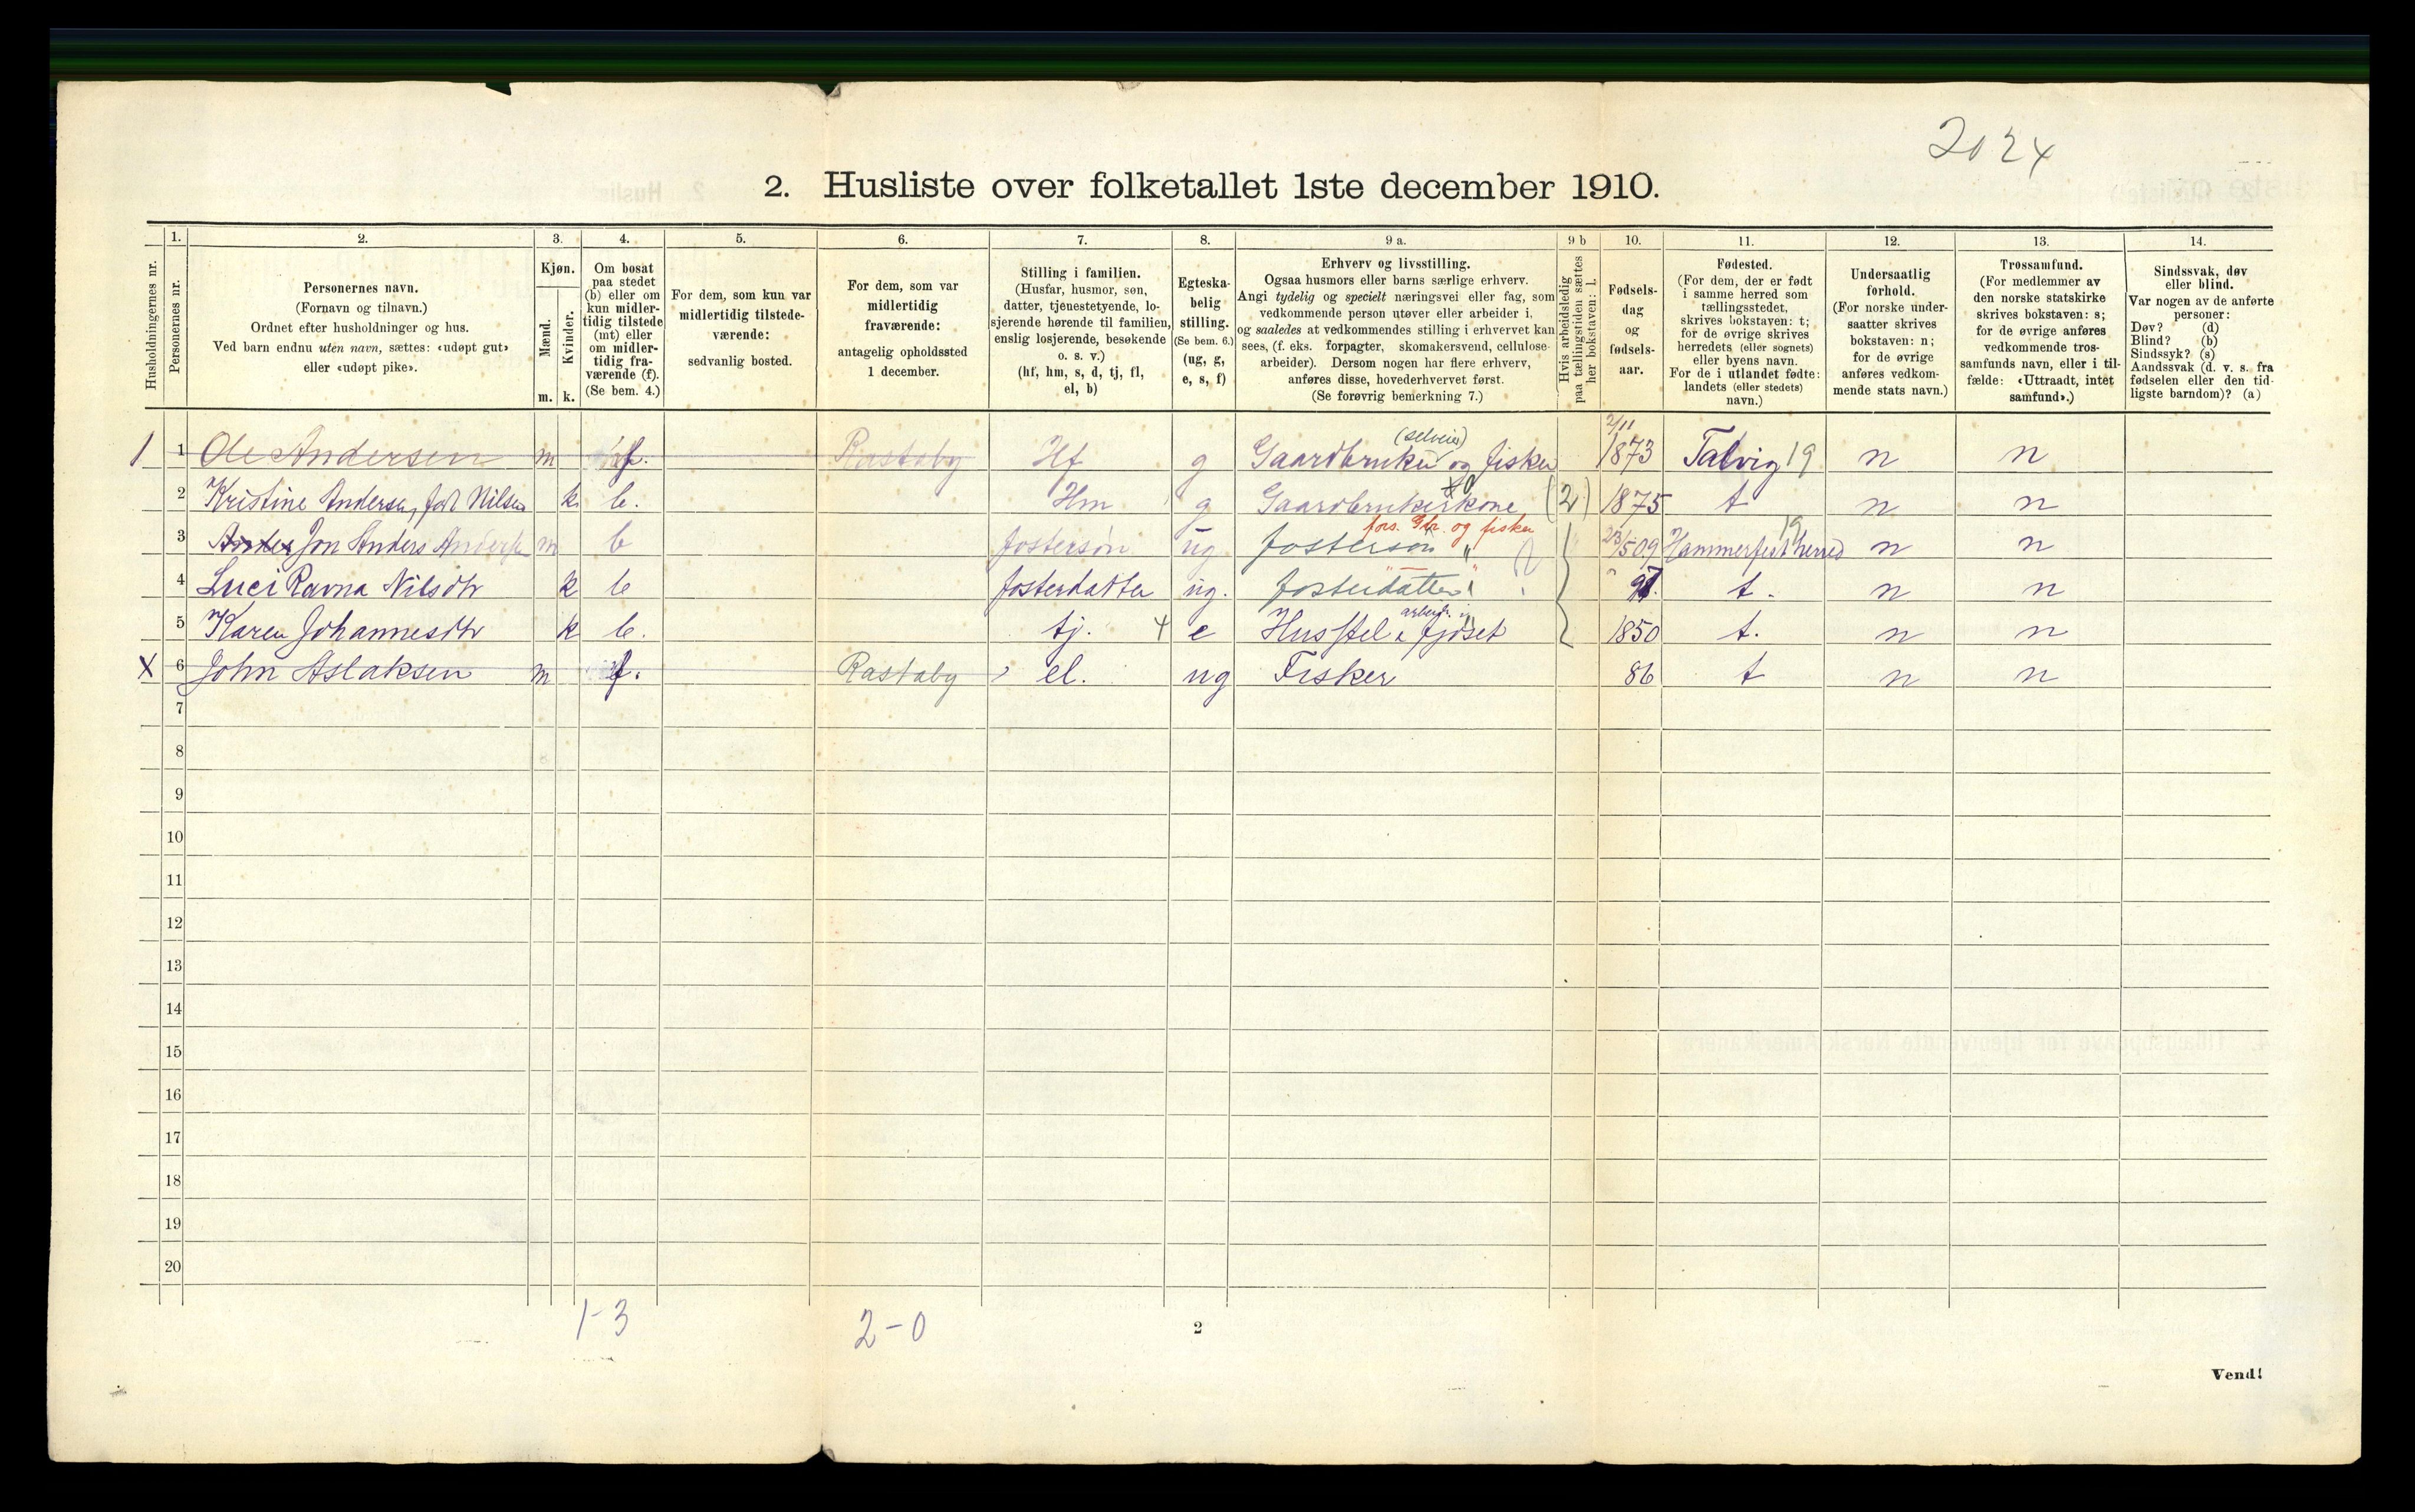 2024
2. Husliste over folketallet 1ste december 1910.
Husholdningernes nr.
1. Personernes nr.
2. Personernes navn.
(Fornavn og tilnavn.)
Ordnet efter husholdninger og hus.
Ved barn endnu uten navn, sættes: «udøpt gut»
eller «udøpt pike».
3. Kjøn.
Mænd. Kvinder.
m. k.
4. Om bosat
paa stedet
(b) eller om
kun midler-
tidig tilstede
(mt) eller
om midler-
tidig fra-
værende (f).
(Se bem. 4.)
5. For dem, som kun var
midlertidig tilstede-
værende:
sedvanlig bosted.
6. For dem, som var
midlertidig
fraværende:
antagelig opholdssted
1 december.
7. Stilling i familien.
(Husfar, husmor, søn,
datter, tjenestetyende, lo-
sjerende hørende til familien,
enslig losjerende, besøkende
o. s. v.)
(hf, hm, s, d, tj, fl,
el, b)
8. Egteska-
belig
stilling.
(Se bem. 6.)
(ug, g,
e, s, f)
9 a. Erhverv og livsstilling.
Ogsaa husmors eller barns særlige erhverv.
Angi tydelig og specielt næringsvei eller fag, som
vedkommende person utøver eller arbeider i,
og saaledes at vedkommendes stilling i erhvervet kan
sees, (f. eks. forpagter, skomakersvend, cellulose-
arbeider). Dersom nogen har flere erhverv,
anføres disse, hovederhvervet først.
(Se forøvrig bemerkning 7.)
9 b Hvis arbeidsledig
paa tællingstiden sættes
her bokstaven: l.
10. Fødsels-
dag
og
fødsels-
aar.
11. Fødested.
(For dem, der er født
i samme herred som
tællingsstedet,
skrives bokstaven: t;
for de øvrige skrives
herredets (eller sognets)
eller byens navn.
For de i utlandet fødte:
landets (eller stedets)
navn.)
12. Undersaatlig
forhold.
(For norske under-
saatter skrives
bokstaven: n;
for de øvrige
anføres vedkom-
mende stats navn.)
13. Trossamfund.
(For medlemmer av
den norske statskirke
skrives bokstaven: s;
for de øvrige anføres
vedkommende tros-
samfunds navn, eller i til-
fælde: «Uttraadt, intet
samfund».)
14. Sindssvak, døv
eller blind.
Var nogen av de anførte
personer:
Døv? (d)
Blind? (b)
Sindssyk? (s)
Aandssvak (d. v. s. fra
fødselen eller den tid-
ligste barndom)? (a)
1 1 Ole Andersen m f. Rastaby Hf g Gaardbruker (selveier) og fisker 2/11 1873 Talvig 19 n n
2 Kristine Andersen, født Nilsen k b. Hm g Gaardbrukerskone (2) 1875 t n n
3 Jon Anders Anders m b fostersøn ug fostersøn fors. Gbr. og fisker 23/5 09 Hammerfest herred 19 n n
4 Luci Ravna Nilsdtr k b fosterdatter ug. fosterdatter t. n n
5 Karen Johannesdtr k b. tj. e Husstel & fjøset arbeide i 1850 t. n n
X 6 John Aslaksen m f. Rastaby el. ug Fisker 86 t n n
7
8
9
10
11
12
13
14
15
16
17
18
19
20
1-3 2-0
2
Vend!